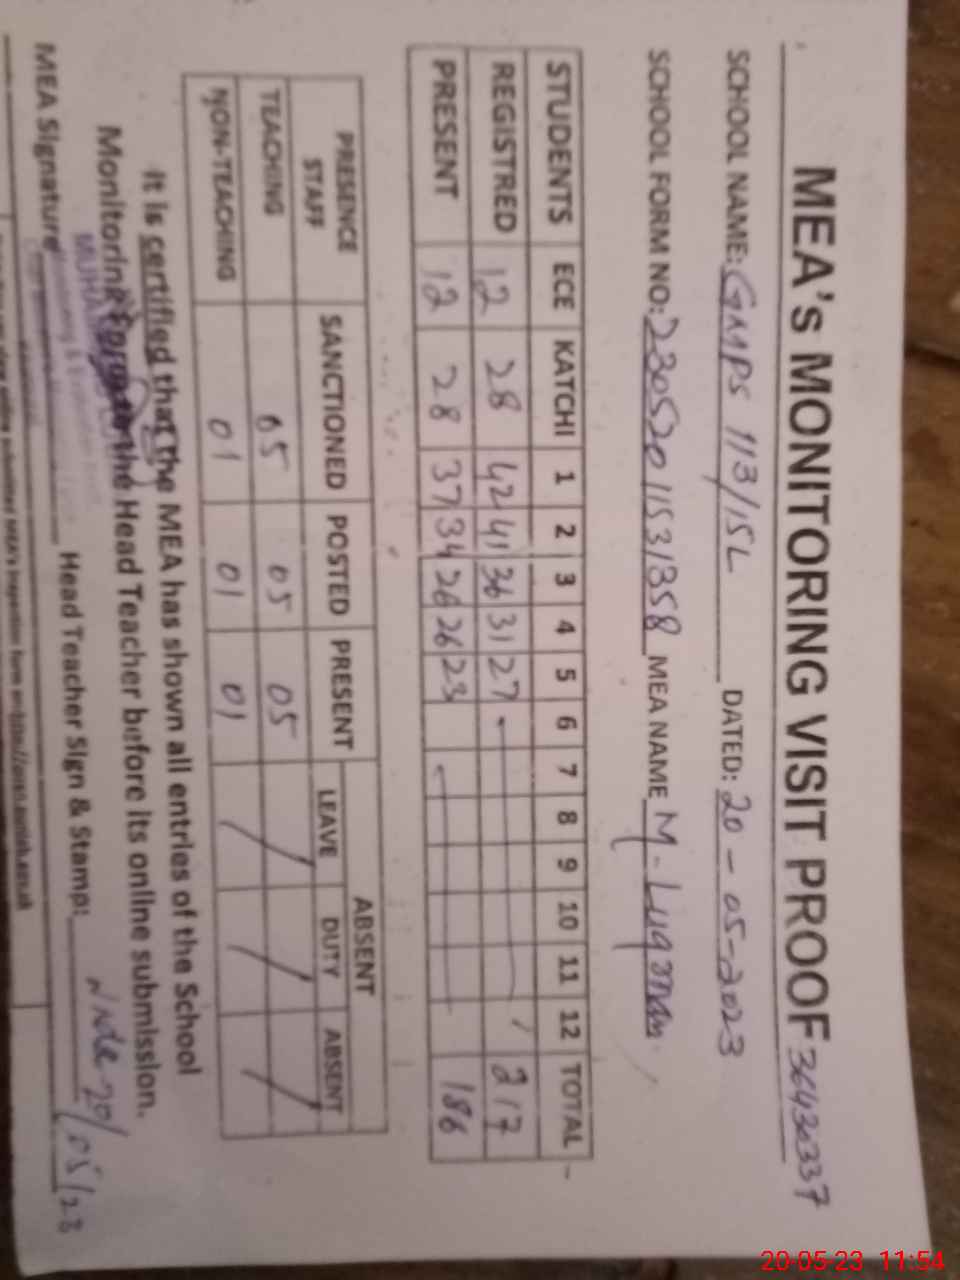 MEA's MONITORING VISIT PROOF 36430337
SCHOOL NAME: GMPS 113/15L DATED: 20-05-2023
SCHOOL FORM NO: 23052011531358 MEA NAME M. Luqman
STUDENTS ECE KATCHI 1 2 3 4 5 6 7 8 9 10 11 12 TOTAL
REGISTRED 12 28 42 41 36 31 27 217
PRESENT 12 28 37 34 26 26 23 186
PRESENCE STAFF SANCTIONED POSTED PRESENT ABSENT
LEAVE DUTY ABSENT
TEACHING 05 05 05
NON-TEACHING 01 01 01
It is certified that the MEA has shown all entries of the School
Monitoring Form to the Head Teacher before its online submission.
MUHA
MEA Signature Head Teacher Sign & Stamp: 20/05/23
20-05-23 11:54